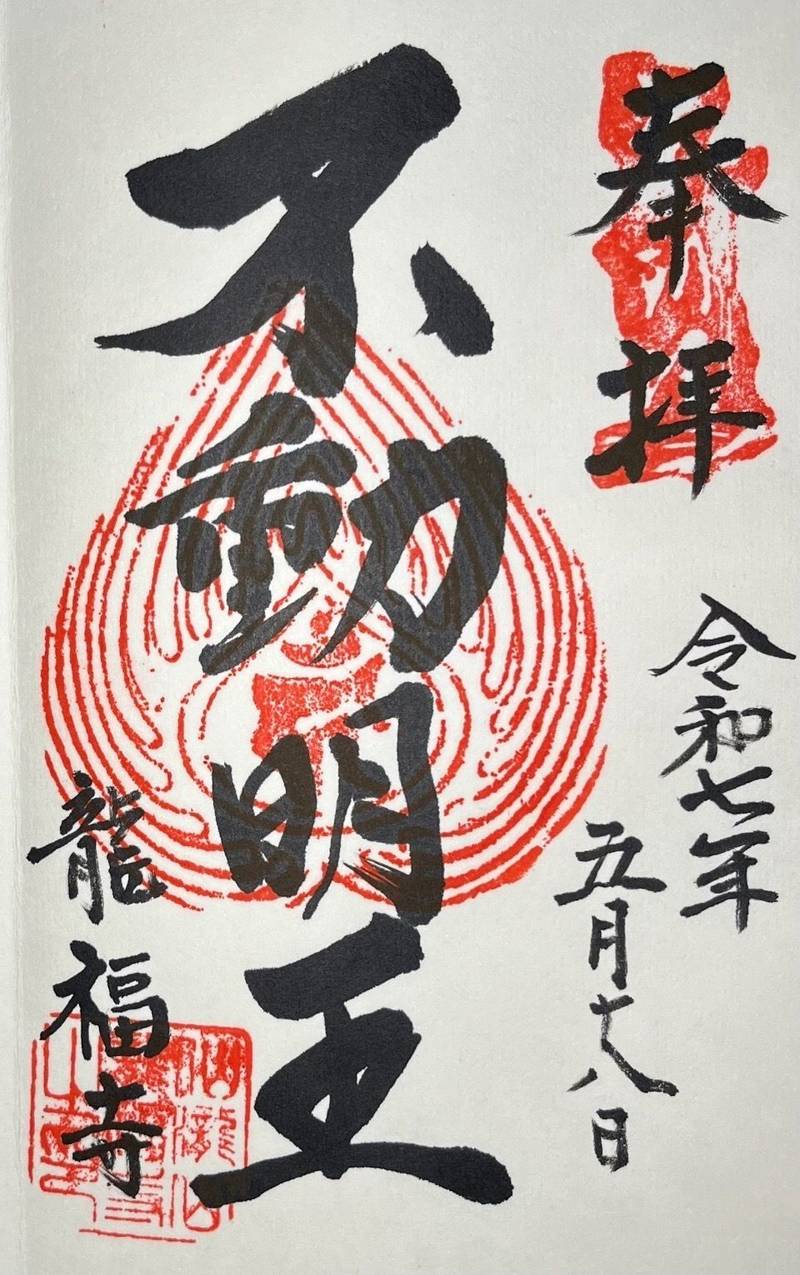 奉拝
令和七年
五月十八日
不動明王
龍福寺